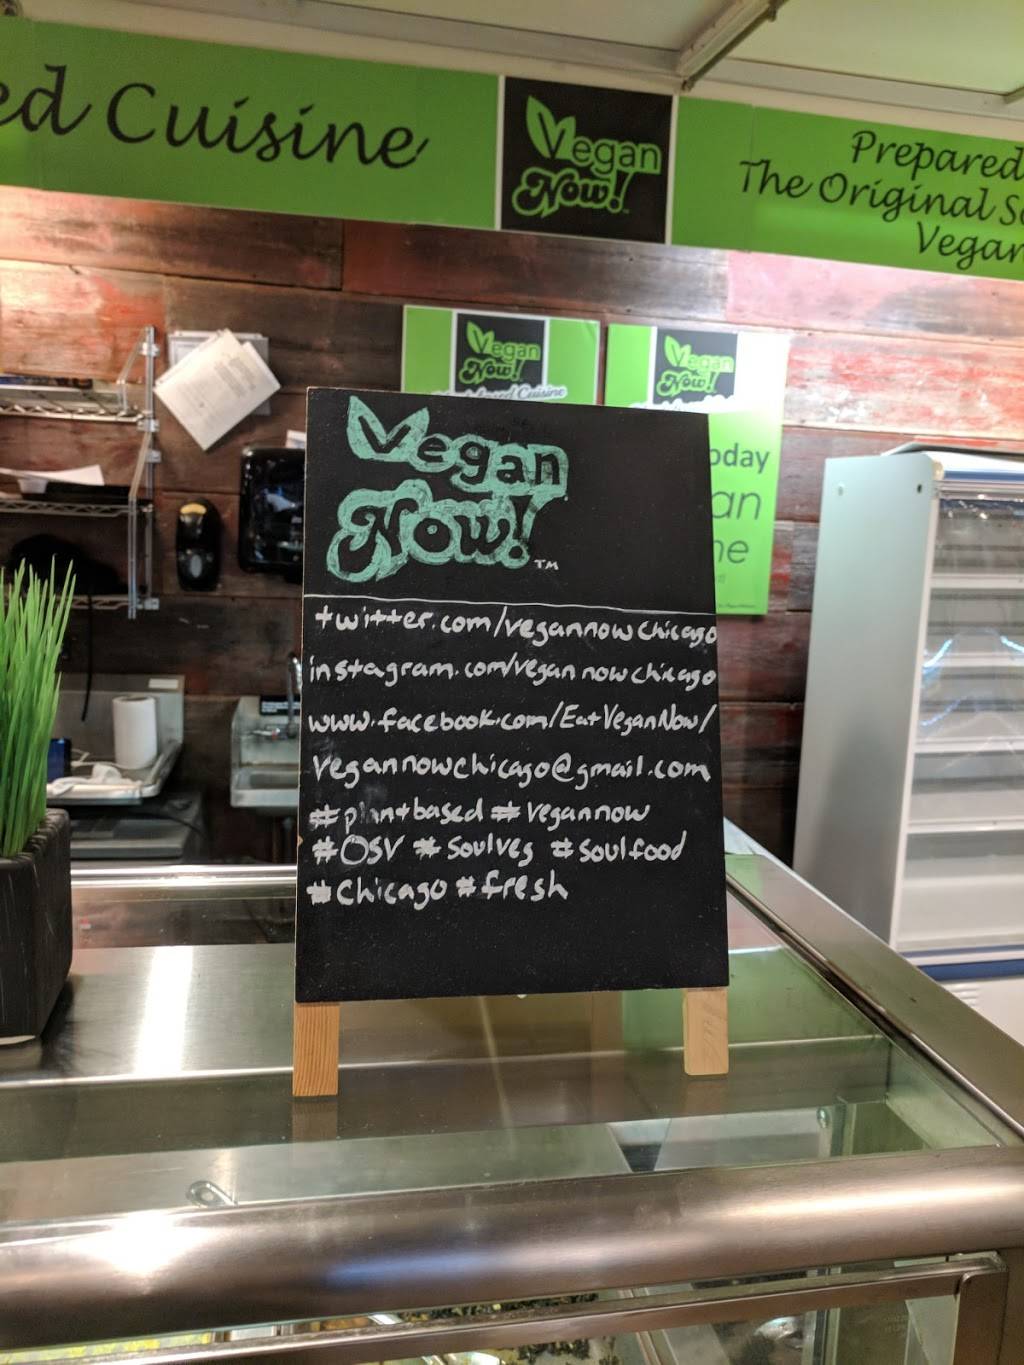 Cuisine
Vegan
Now!
Prepared
The Original
Vegan
Vegan
Now!
Cuisine
Vegan
Now!
Vegan
Now!™
twitter.com/vegannowchicago
instagram.com/vegannowchicago
www.facebook.com/EatVeganNow/
vegannowchicago@gmail.com
#plantbased #vegannow
#OSV #Soulveg #soulfood
#Chicago #fresh